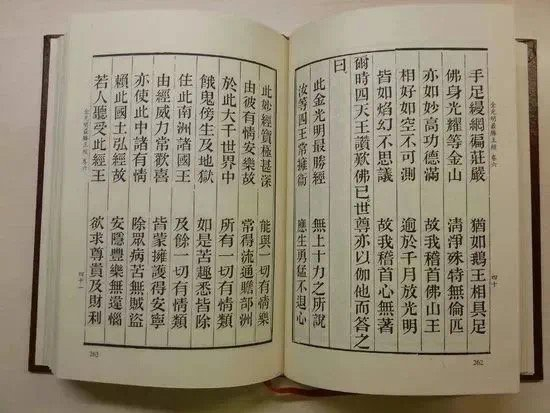 手足縵網徧莊嚴　猶如鵝王相具足
佛身光耀等金山　清淨殊特無倫匹
亦如妙高功德滿　故我稽首佛山王
相好如空不可測　逾於千月放光明
皆如焰幻不思議　故我稽首心無著
爾時四天王讚歎佛已世尊亦以伽他而答之
曰
此金光明最勝經　無上十力之所說
汝等四王常擁衞　應生勇猛不退心
金光明最勝王經 卷六
四十
262
此妙經寶極甚深　能與一切有情樂
由彼有情安樂故　常得流通贍部洲
於此大千世界中　所有一切有情類
餓鬼傍生及地獄　如是苦趣悉皆除
住此南洲諸國王　及餘一切有情類
由經威力常歡喜　皆蒙擁護得安寧
亦使此中諸有情　除眾病苦無賊盜
賴此國土弘經故　安隱豐樂無違惱
若人聽受此經王　欲求尊貴及財利
金光明最勝王經 卷六
四十一
263